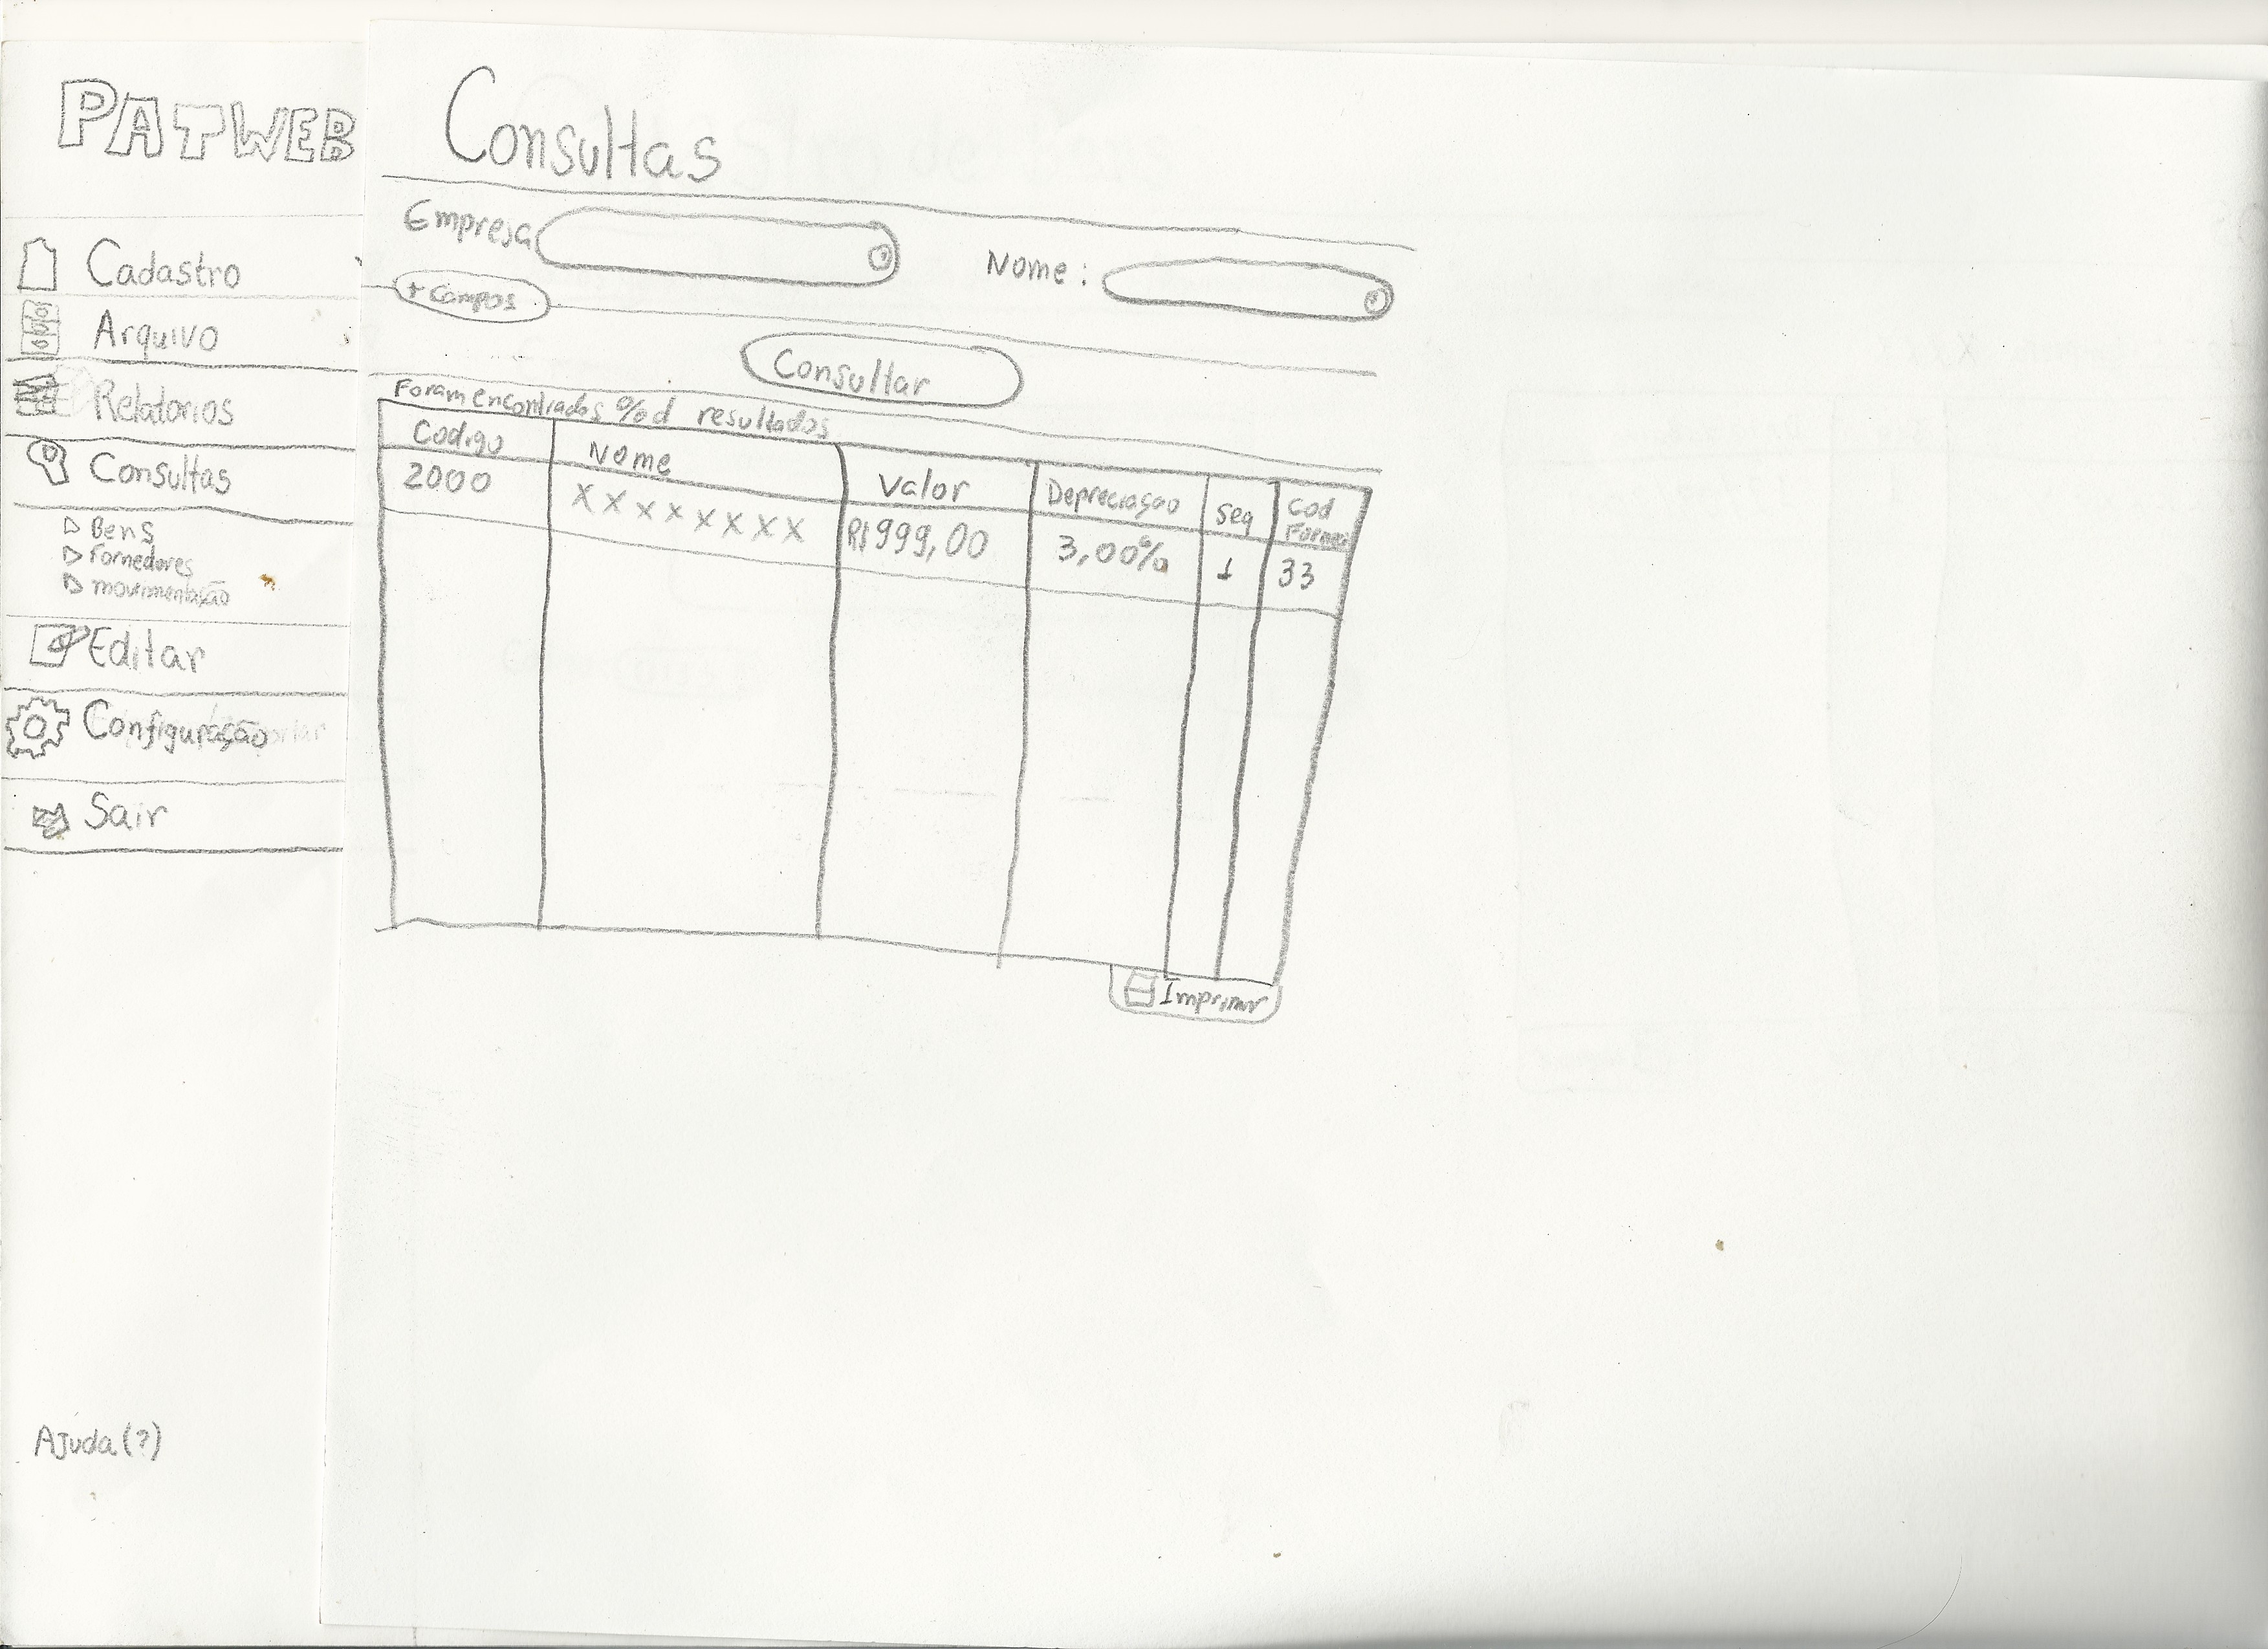 PATWEB
Cadastro
Arquivo
Relatorios
Consultas
Bens
Fornedores
movimentação
Editar
Configuração
Sair
Ajuda (?)
Consultas
Empresa
Nome :
+ Campos
Consultar
Foram encontrados %d resultados
Codigo Nome Valor Depreciaçao Seq Cod
2000 XXXXXXXX R$ 999,00 3,00% 1 33
Imprimir